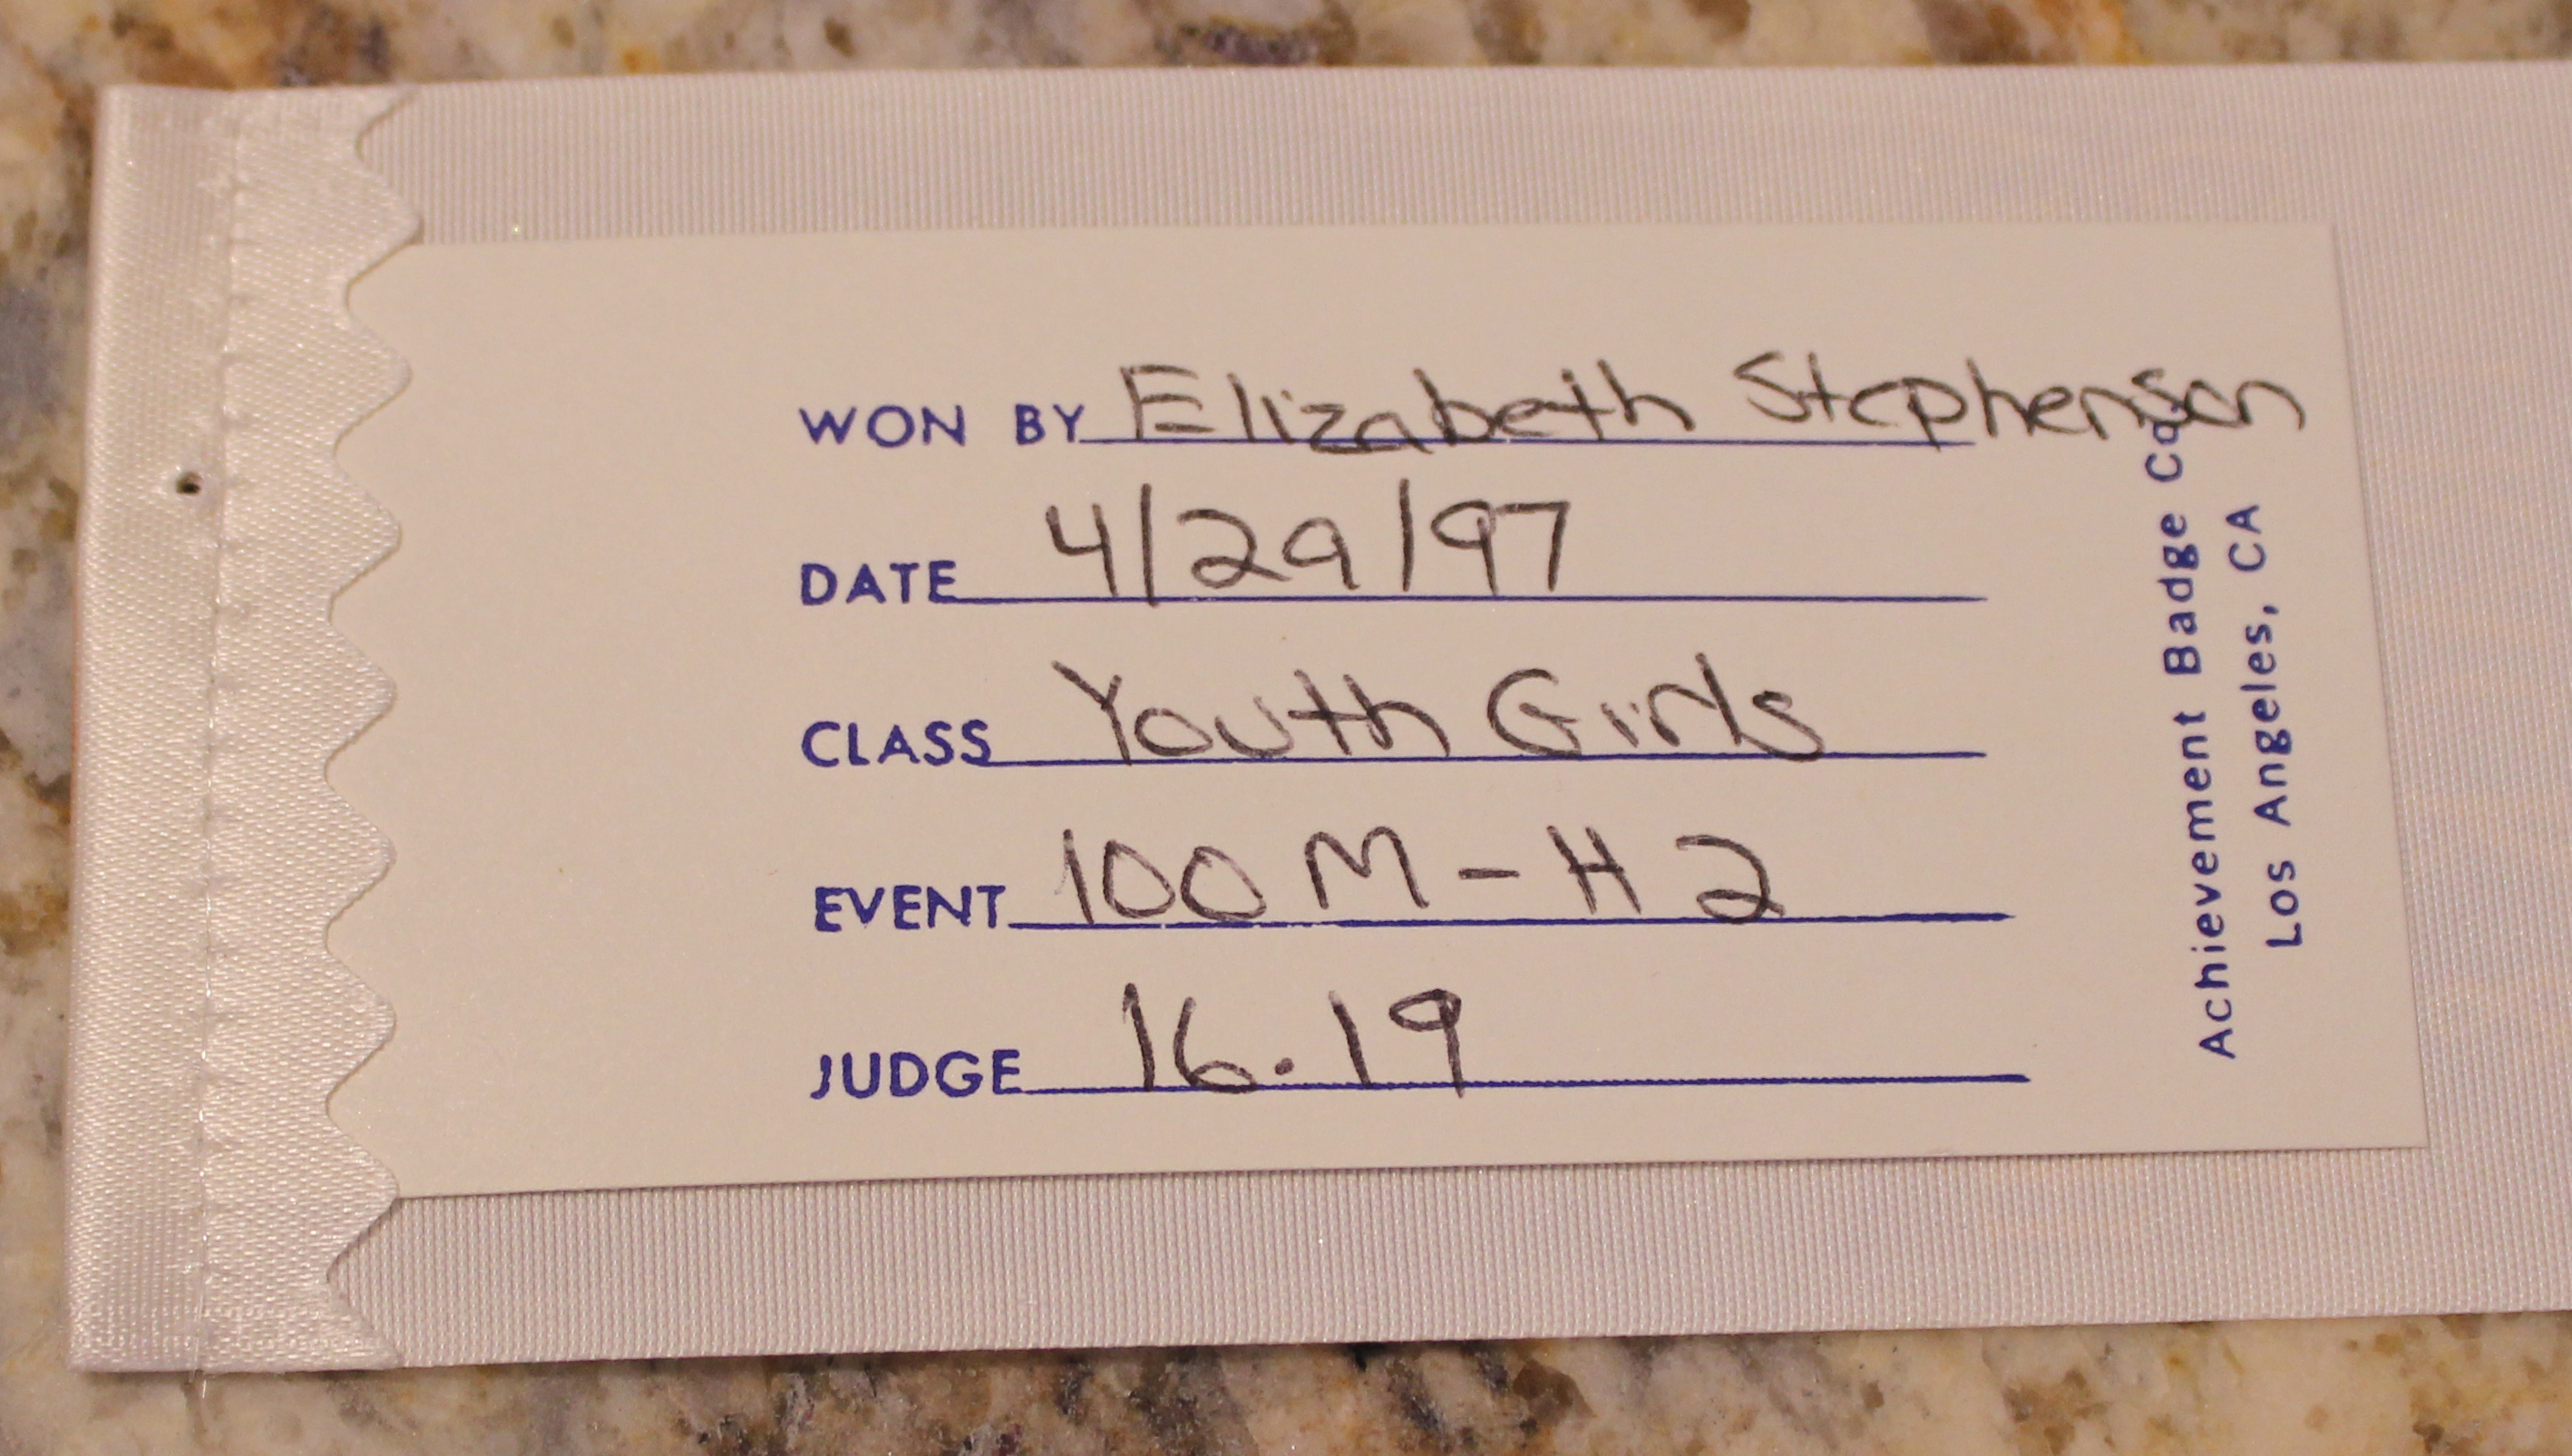 WON BY Elizabeth Stephenson
DATE 4/29/97
CLASS Youth Girls
EVENT 100 M - H 2
JUDGE 16.19
Achievement Badge Co.
Los Angeles, CA